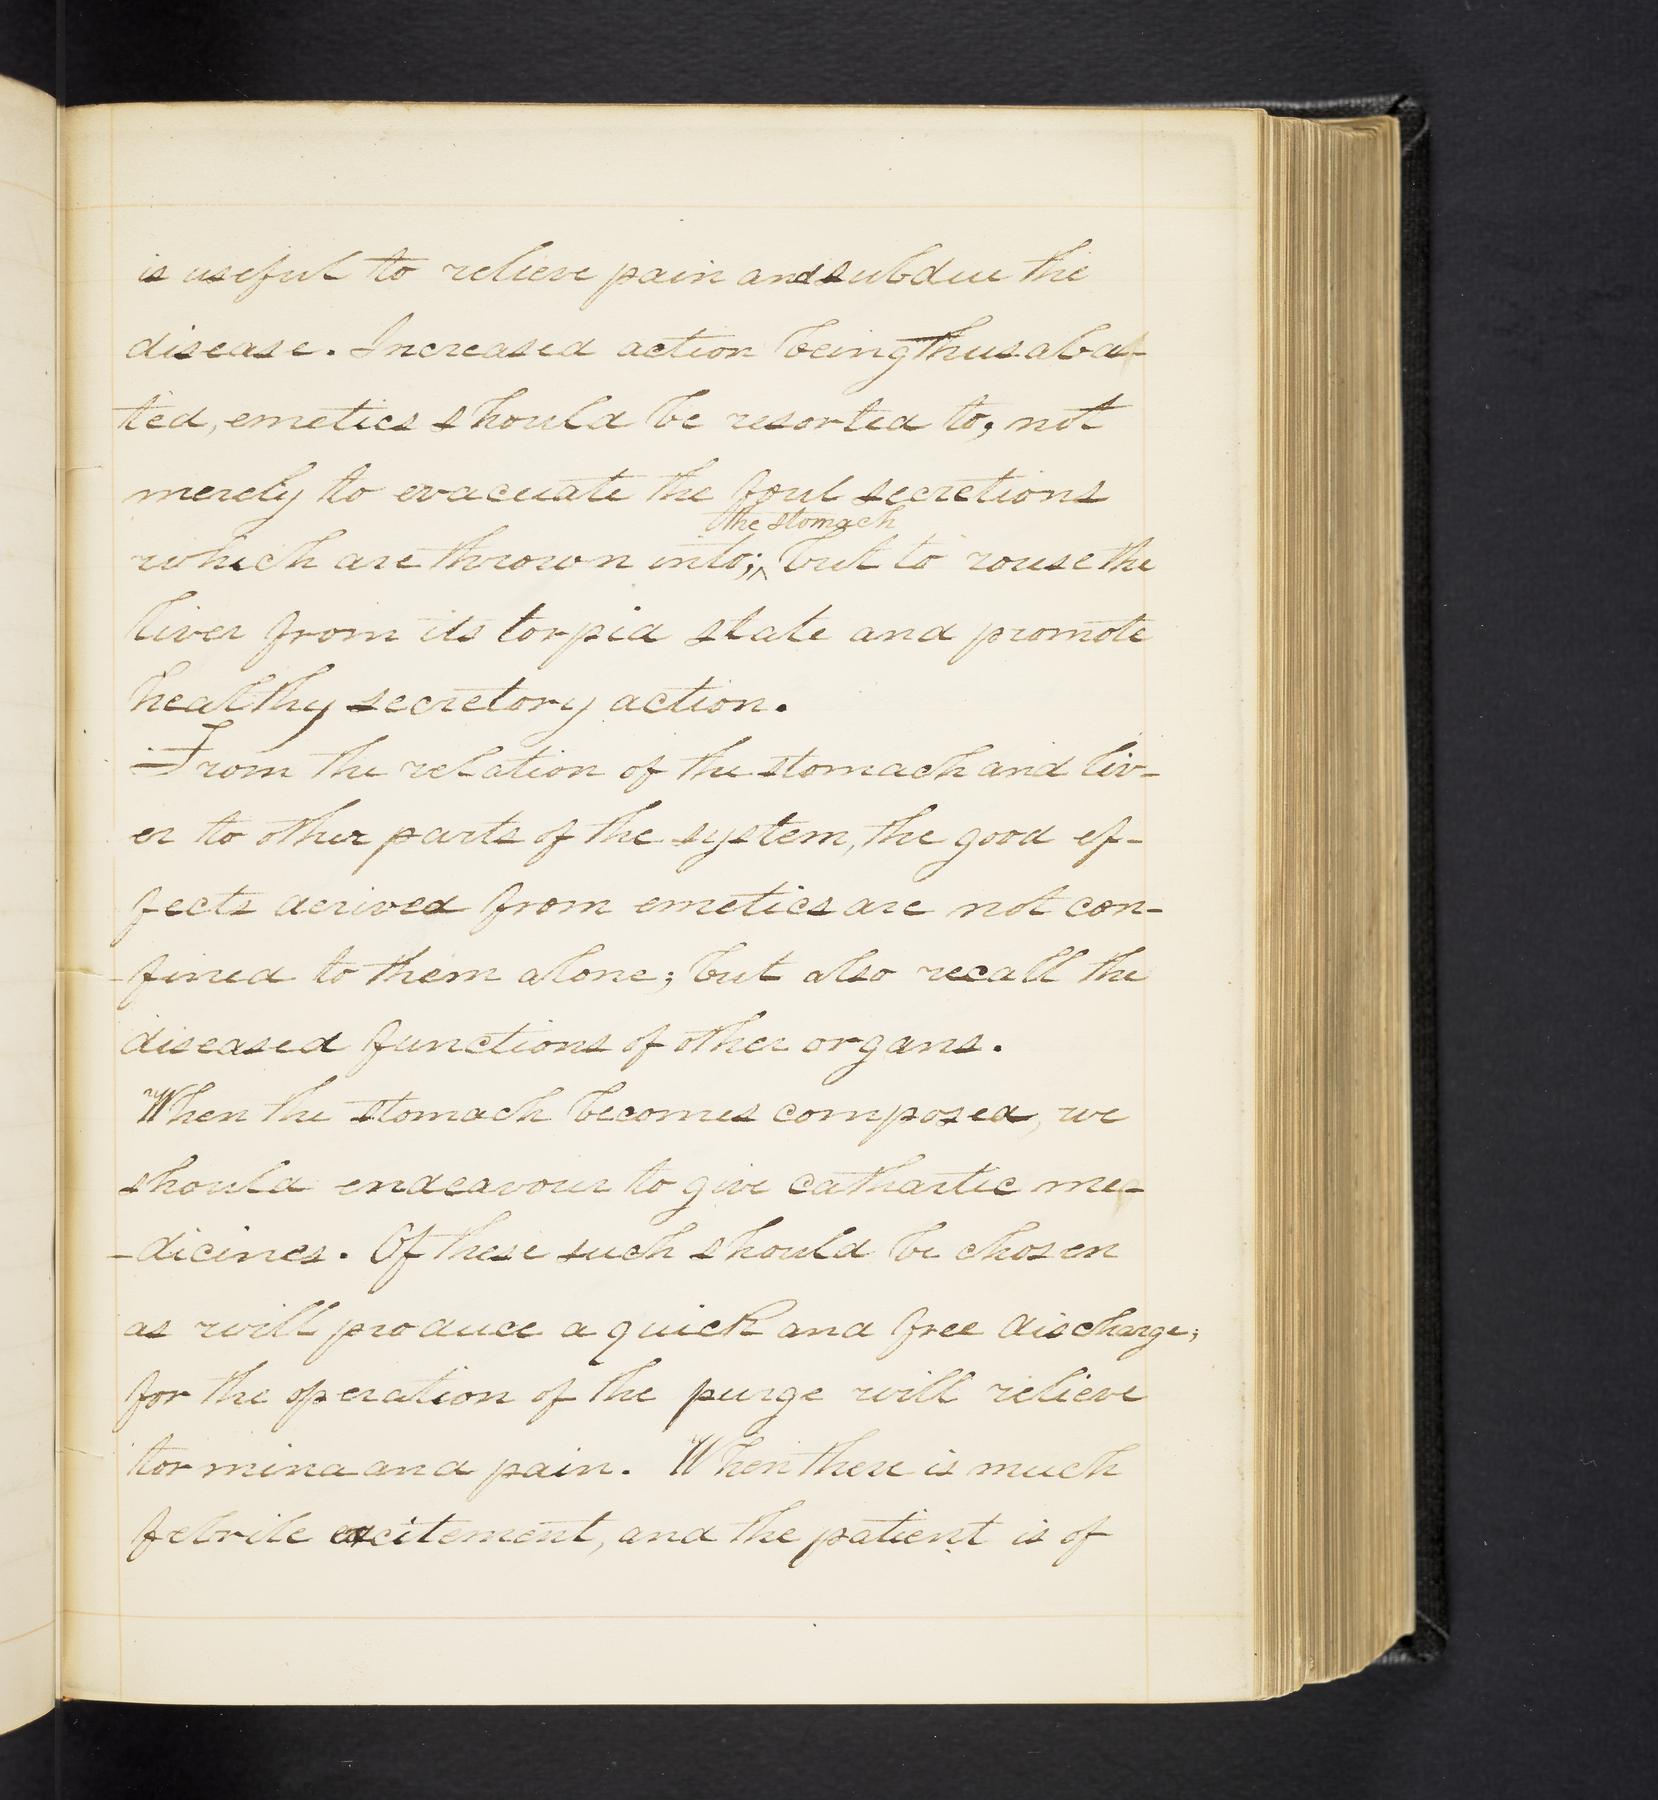 is useful to relieve pain and subdue the
disease. Increased action being thus aba-
ted, emetics should be resorted to, not
merely to evacuate the foul secretions
the stomach
which are thrown into; ^ but to rouse the
liver from its torpid state and promote
healthy secretory action.
From the relation of the stomach and liv-
er to other parts of the system, the good ef-
fects derived from emetics are not con-
fined to them alone; but also recall the
diseased functions of other organs.
When the stomach becomes composed, we
should endeavour to give cathartic me-
-dicines. Of these such should be chosen
as will produce a quick and free discharge;
for the operation of the purge will relieve
tormina and pain. When there is much
febrile excitement, and the patient is of